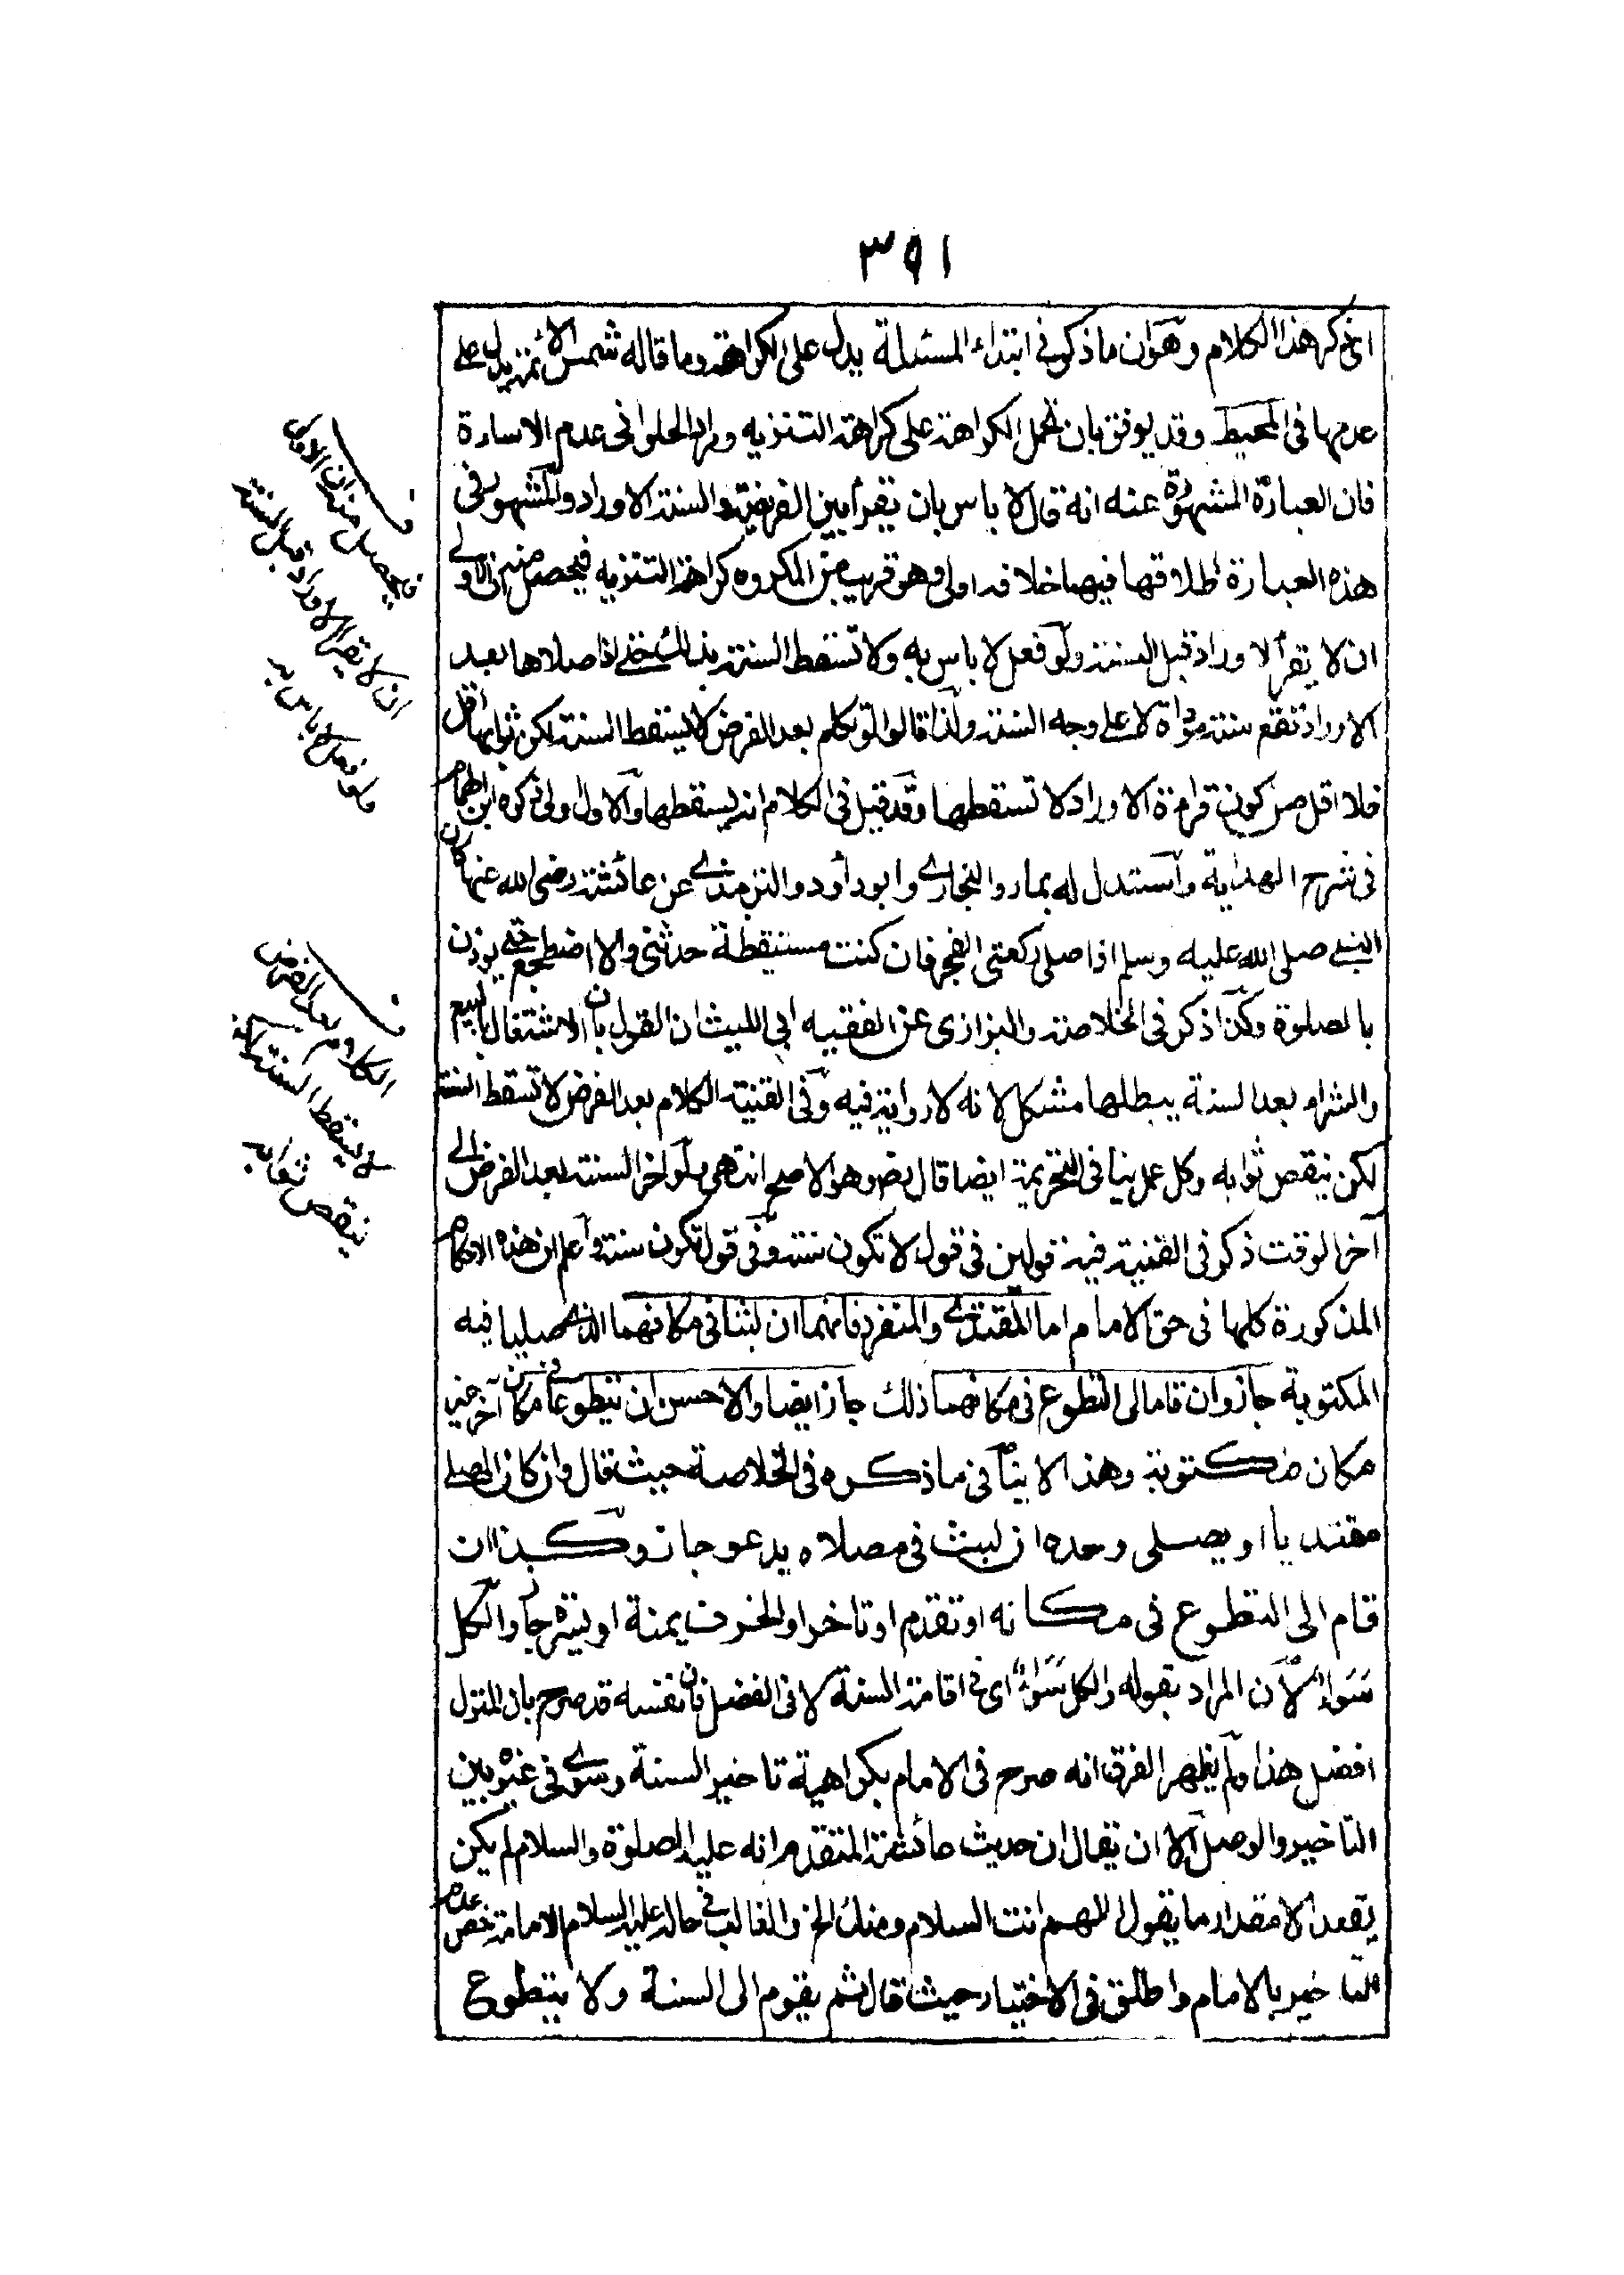 ٣٥١
اى ذكر هذا الكلام وهو ان ما ذكر فى ابتداء المسئلة يدل على الكراهة وما قاله شمس الائمة يدل على
عدمها فى المحيط وقد يوفق بان تحمل الكراهة على كراهة التنزيه ومراد الحلوانى عدم الاساءة
فان العبارة المشهورة عنه انه قال لا باس بان يقرأ بين الفريضة والسنة الاوراد والمشهور فى
هذه العبارة اطلاقها فيما خلافه اولى وهو قريب من المكروه كراهة التنزيه فيحصل منه ان الاولى
ان لا يقرأ الاوراد قبل السنة ولو فعل لا باس به ولا تسقط السنة بذلك حتى اذا صلاها بعد
الاوراد تقع سنة مؤداة لا على وجه السنة ولذا قالوا لو تكلم بعد الفرض لا يسقط السنة لكن ثوابها اقل
فلا اقل من كون قراءة الاوراد لا تسقطها وقد قيل فى الكلام انه يسقطها والاول اولى ذكره ابن الهمام
فى شرح الهداية واستدل له بما روى البخارى وابو داود والترمذى عن عائشة رضى الله عنها كان
النبى صلى الله عليه وسلم اذا صلى ركعتى الفجر فان كنت مستيقظة حدثنى والا اضطجع حتى يوذن
بالصلوة وكذا ذكر فى الخلاصة والبزازى عن الفقيه ابى الليث ان القول بان الاشتغال بالبيع
والشراء بعد السنة يبطلها مشكل لانه لا رواية فيه وفى القنية الكلام بعد الفرض لا تسقط السنة
لكن ينقص ثوابه وكل عمل ينافى التحريمة ايضا قال رض وهو الاصح انتهى ولو اخر السنة بعد الفرض الى
آخر الوقت ذكر فى القنية فيه قولين فى قول لا تكون سنة وفى قول تكون سنة واعلم ان هذه الاحكام
المذكورة كلها فى حق الامام اما المقتدى والمنفرد فانهما ان لبثا فى مكانهما الذى صليا فيه
المكتوبة جاز وان قاما الى التطوع فى مكانهما ذلك جاز ايضا والاحسن ان يتطوعا فى مكان آخر غير
مكان المكتوبة وهذا لا ينافى ما ذكره فى الخلاصة حيث قال وان كان المصلى
مقتديا او يصلى وحده ان لبث فى مصلاه يدعو جاز وكذا ان
قام الى التطوع فى مكانه او تقدم او تاخر او انحرف يمنة او يسرة جاز والكل
سواء لان المراد بقوله والكل سواء اى فى اقامة السنة لا فى الفضل فان نفسه قد صرح بان المنزل
افضل هذا ولم يظهر الفرق انه صرح فى الامام بكراهية تاخير السنة وسوى فى غيره بين
التاخير والوصل الا ان يقال ان حديث عائشة المتقدم انه عليه الصلوة والسلام لم يكن
يقعد الا مقدار ما يقول اللهم انت السلام ومنك الخ والغالب فى حاله عليه السلام الامامة خص عدم
التاخير بالامام واطلق فى الاختيار حيث قال ثم يقوم الى السنة ولا يتطوع
فيحصل منه ان الاولى
ان لا يقرأ الاوراد قبل السنة
ولو فعل لا باس به
الكلام بعد الفرض
لا يسقط السنة لكنه
ينقص ثوابه